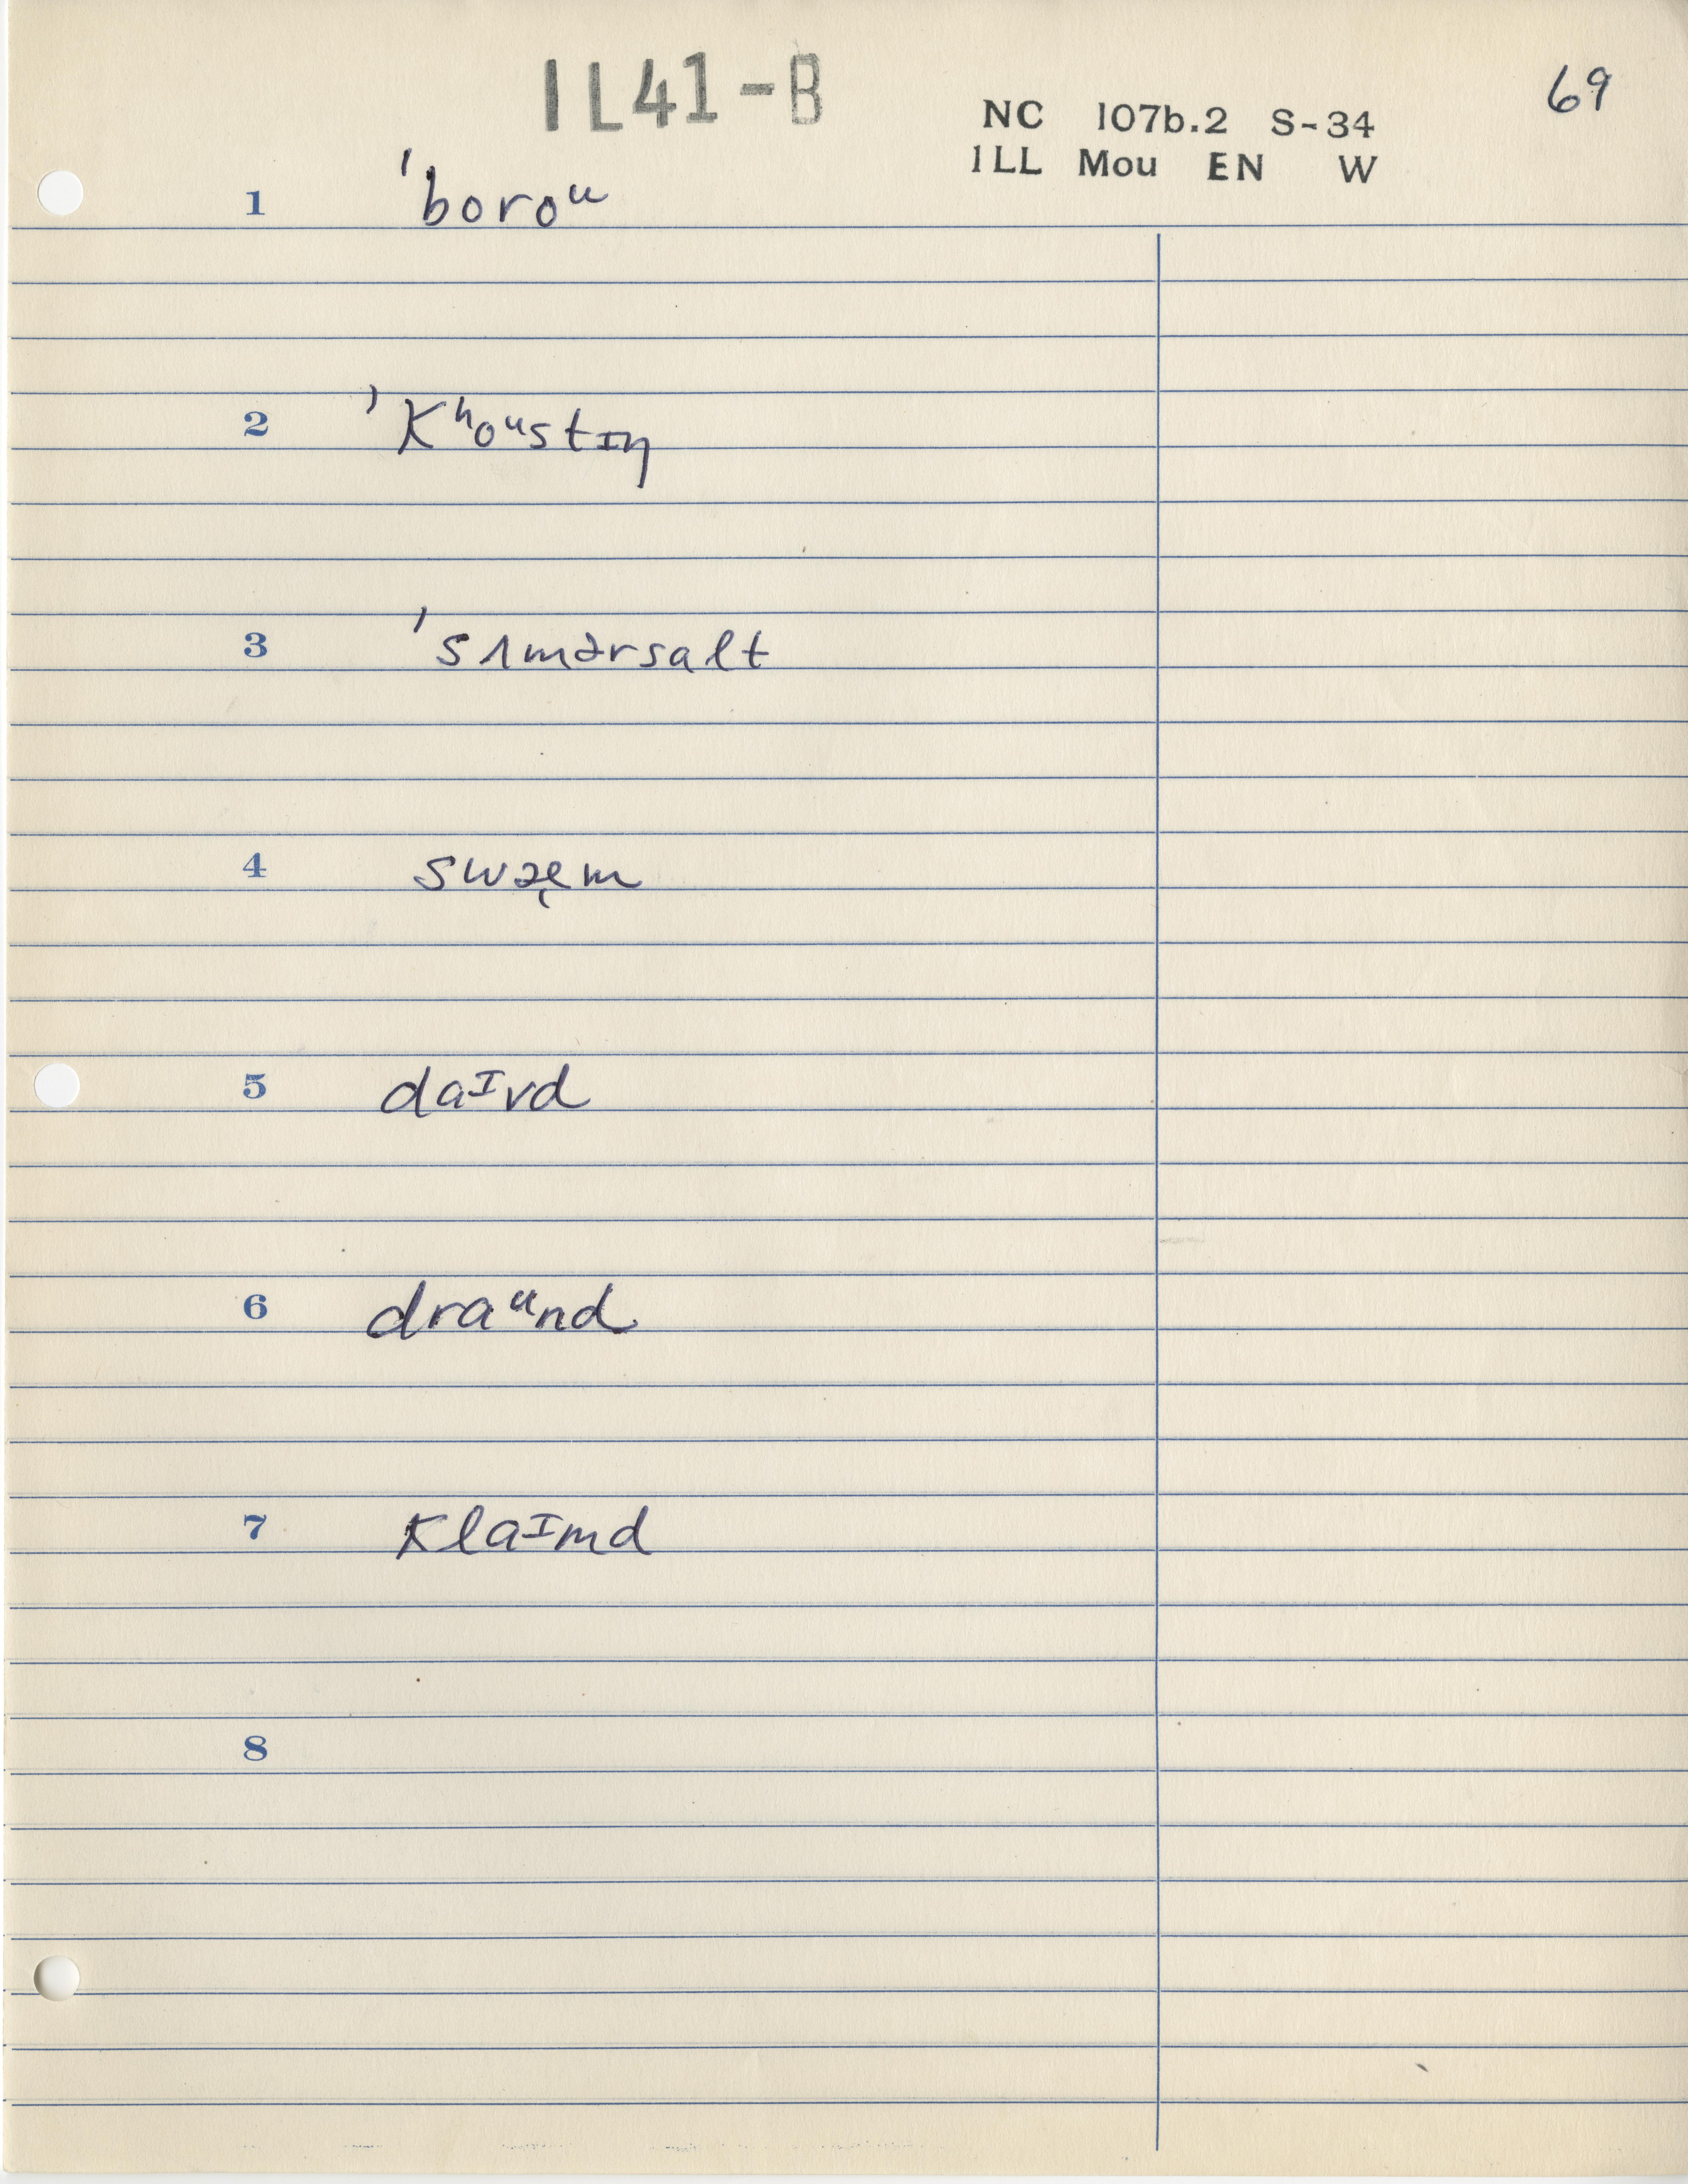 IL41-B
69
NC 107b.2 S-34
ILL Mou EN W
1 ˈboroᵘ
2 ˈkʰoᵘstɪŋ
3 ˈsʌmərsalt
4 swæ̨m
5 daᶦvd
6 draᵘnd
7 klaᶦmd
8